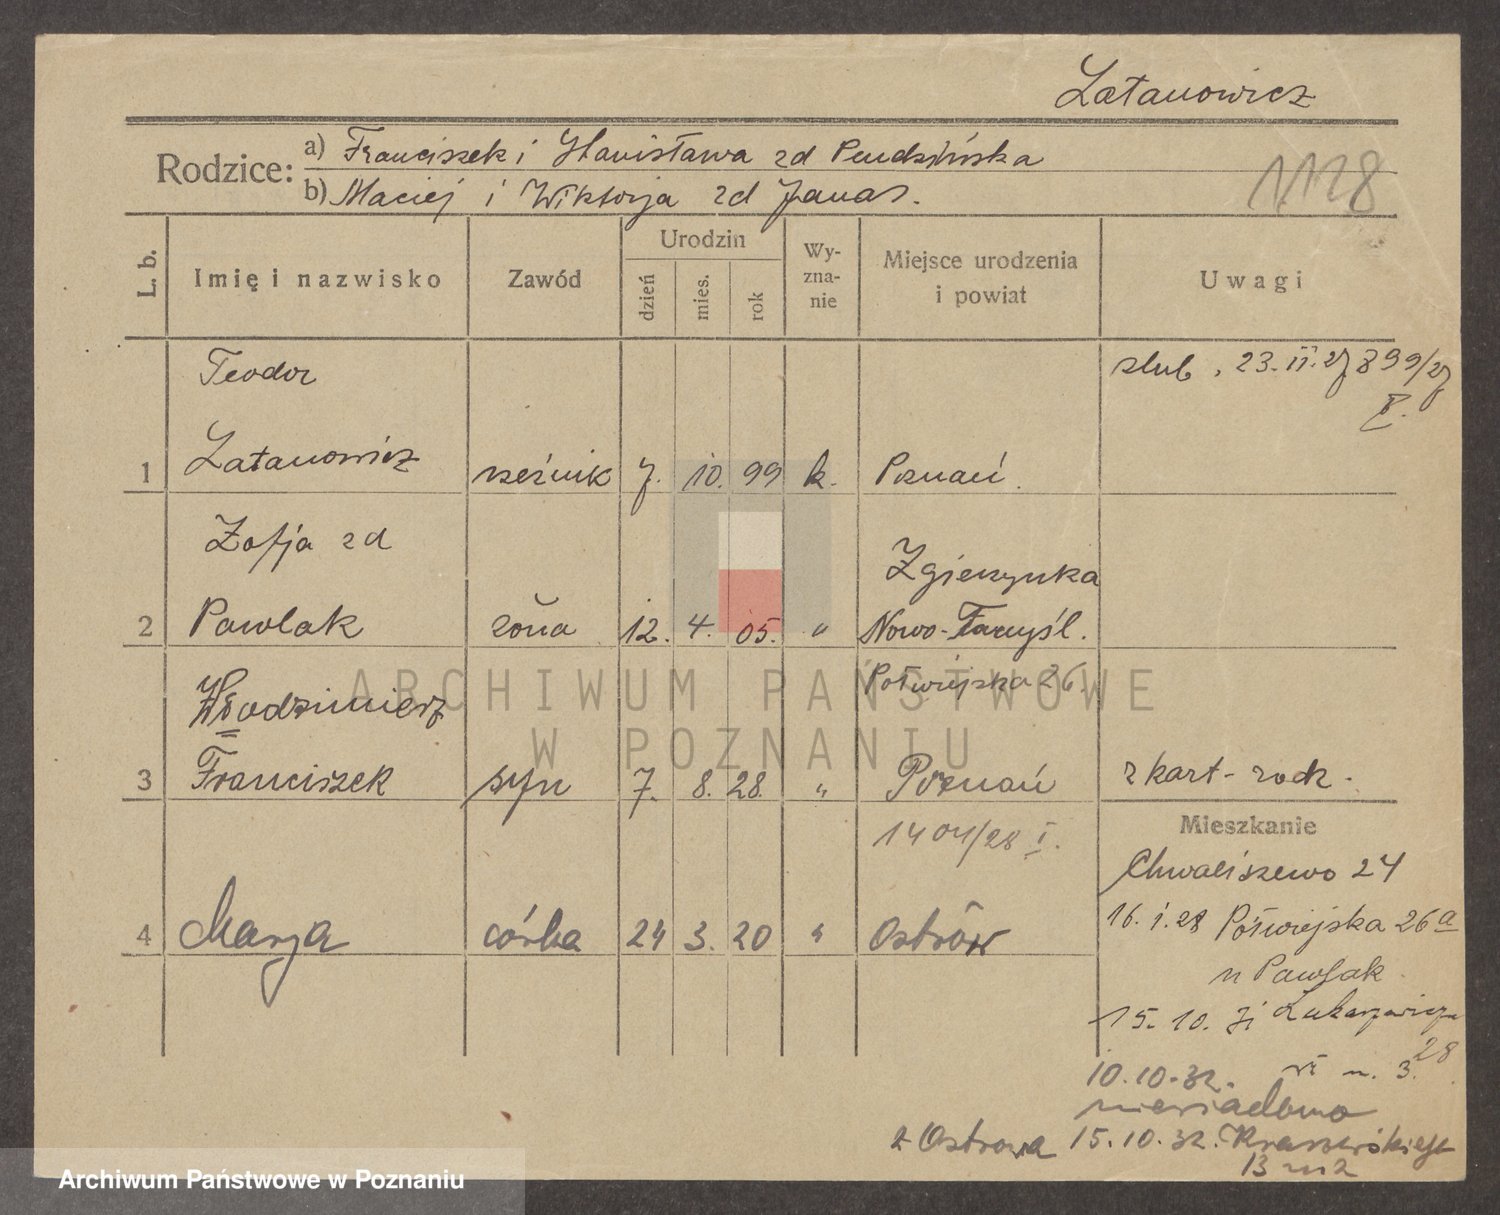 Latanowicz
Rodzice: a) Franciszek i Stanisława zd Pendzińska
b) Maciej i Wiktorja zd Janas.
1128
L. b.
Imię i nazwisko
Zawód
Urodzin
dzień
mies.
rok
Wy-
zna-
nie
Miejsce urodzenia
i powiat
Uwagi
Teodor
ślub, 23.II.27 899/27
Latanowicz
1 rzeźnik 7. 10. 99 k. Poznań.
Zofja zd
Zgierzynka
2 Pawlak żona 12. 4. 05. " Nowo-Tomyśl.
Półwiejska 26
Włodzimierz
3 Franciszek syn 7. 8. 28. " Poznań z kart- rodz.
1404/28 I.
Mieszkanie
Chwaliszewo 24
16.1.28 Półwiejska 26a
4 Marja córka 24 3. 20 " Ostrów
u Pawlak
15.10. 31 Łukaszewicza
28
10.10.32. m. 3.
niewiadomo
z Ostrowa 15.10.32. Kraszewskiego
13 m 2
ARCHIWUM PAŃSTWOWE
W POZNANIU
Archiwum Państwowe w Poznaniu